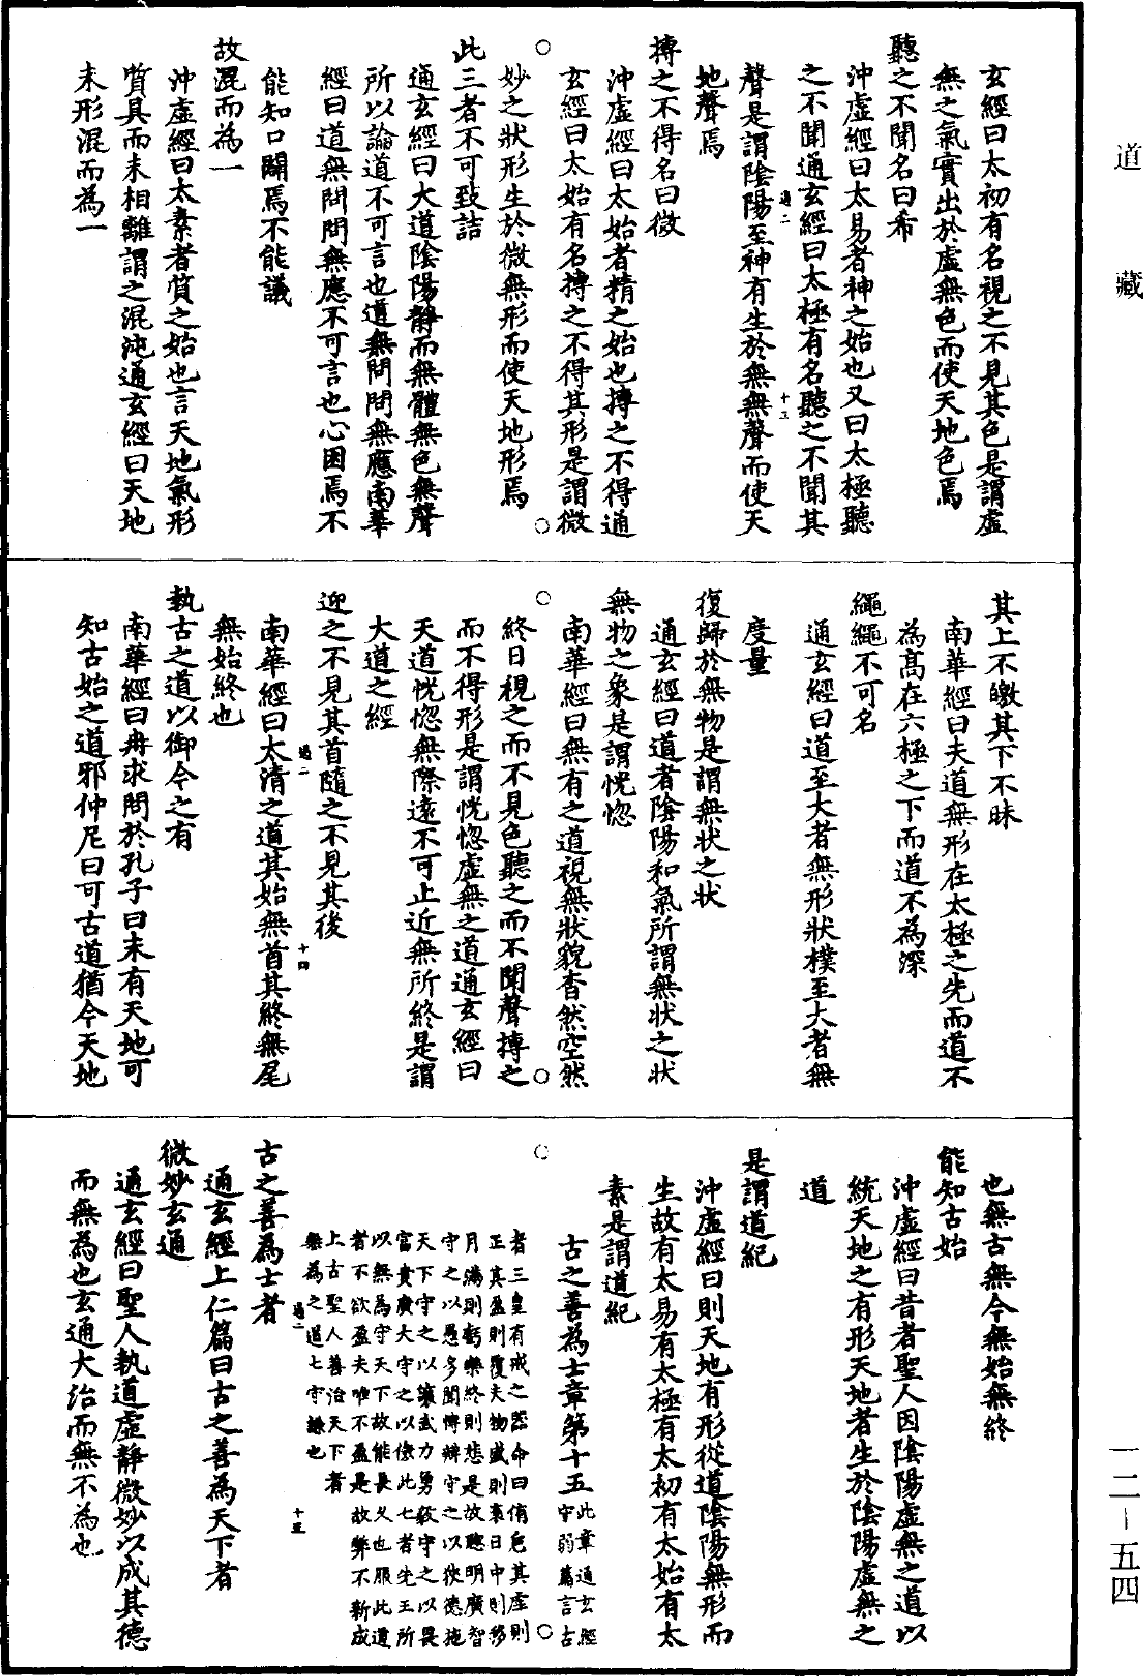 道藏
玄經曰太初有名視之不見其色是謂虛
無之氣實出於虛無色而使天地色焉
聽之不聞名曰希
沖虛經曰太易者神之始也又曰太極聽
之不聞通玄經曰太極有名聽之不聞其
通二
十三
聲是謂陰陽至神有生於無無聲而使天
地聲焉
搏之不得名曰微
沖虛經曰太始者精之始也搏之不得通
玄經曰太始有名搏之不得其形是謂微
妙之狀形生於微無形而使天地形焉
此三者不可致詰
通玄經曰大道陰陽靜而無體無色無聲
所以論道不可言也道無問問無應南華
經曰道無問問無應不可言也心困焉不
能知口闢焉不能議
故混而為一
沖虛經曰太素者質之始也言天地氣形
質具而未相離謂之混沌通玄經曰天地
未形混而為一
其上不皦其下不昧
南華經曰夫道無形在太極之先而道不
為高在六極之下而道不為深
繩繩不可名
通玄經曰道至大者無形狀樸至大者無
度量
復歸於無物是謂無狀之狀
通玄經曰道者陰陽和氣所謂無狀之狀
無物之象是謂恍惚
南華經曰無有之道視無狀貌杳然空然
終日視之而不見色聽之而不聞聲搏之
而不得形是謂恍惚虛無之道通玄經曰
天道恍惚無際遠不可止近無所終是謂
大道之經
迎之不見其首隨之不見其後
通二
十四
南華經曰太清之道其始無首其終無尾
無始終也
執古之道以御今之有
南華經曰冉求問於孔子曰未有天地可
知古始之道邪仲尼曰可古道猶今天地
也無古無今無始無終
能知古始
沖虛經曰昔者聖人因陰陽虛無之道以
統天地之有形天地者生於陰陽虛無之
道
是謂道紀
沖虛經曰則天地有形從道陰陽無形而
生故有太易有太極有太初有太始有太
素是謂道紀
古之善為士章第十五
此章通玄經
守弱篇言古
者三皇有戒之器命曰侑巵其虛則
正其盈則覆夫物盛則衰日中則移
月滿則虧樂終則悲是故聰明廣智
守之以愚多聞博辨守之以儉德施
天下守之以讓武力勇毅守之以畏
富貴廣大守之以儉此七者先王所
以無為守天下故能長久也服此道
者不欲盈夫唯不盈是故弊不新成
上古聖人善治天下者
無為之道七守謙也
通二
十五
古之善為士者
通玄經上仁篇曰古之善為天下者
微妙玄通
通玄經曰聖人執道虛靜微妙以成其德
而無為也玄通大治而無不為也
一二－五四